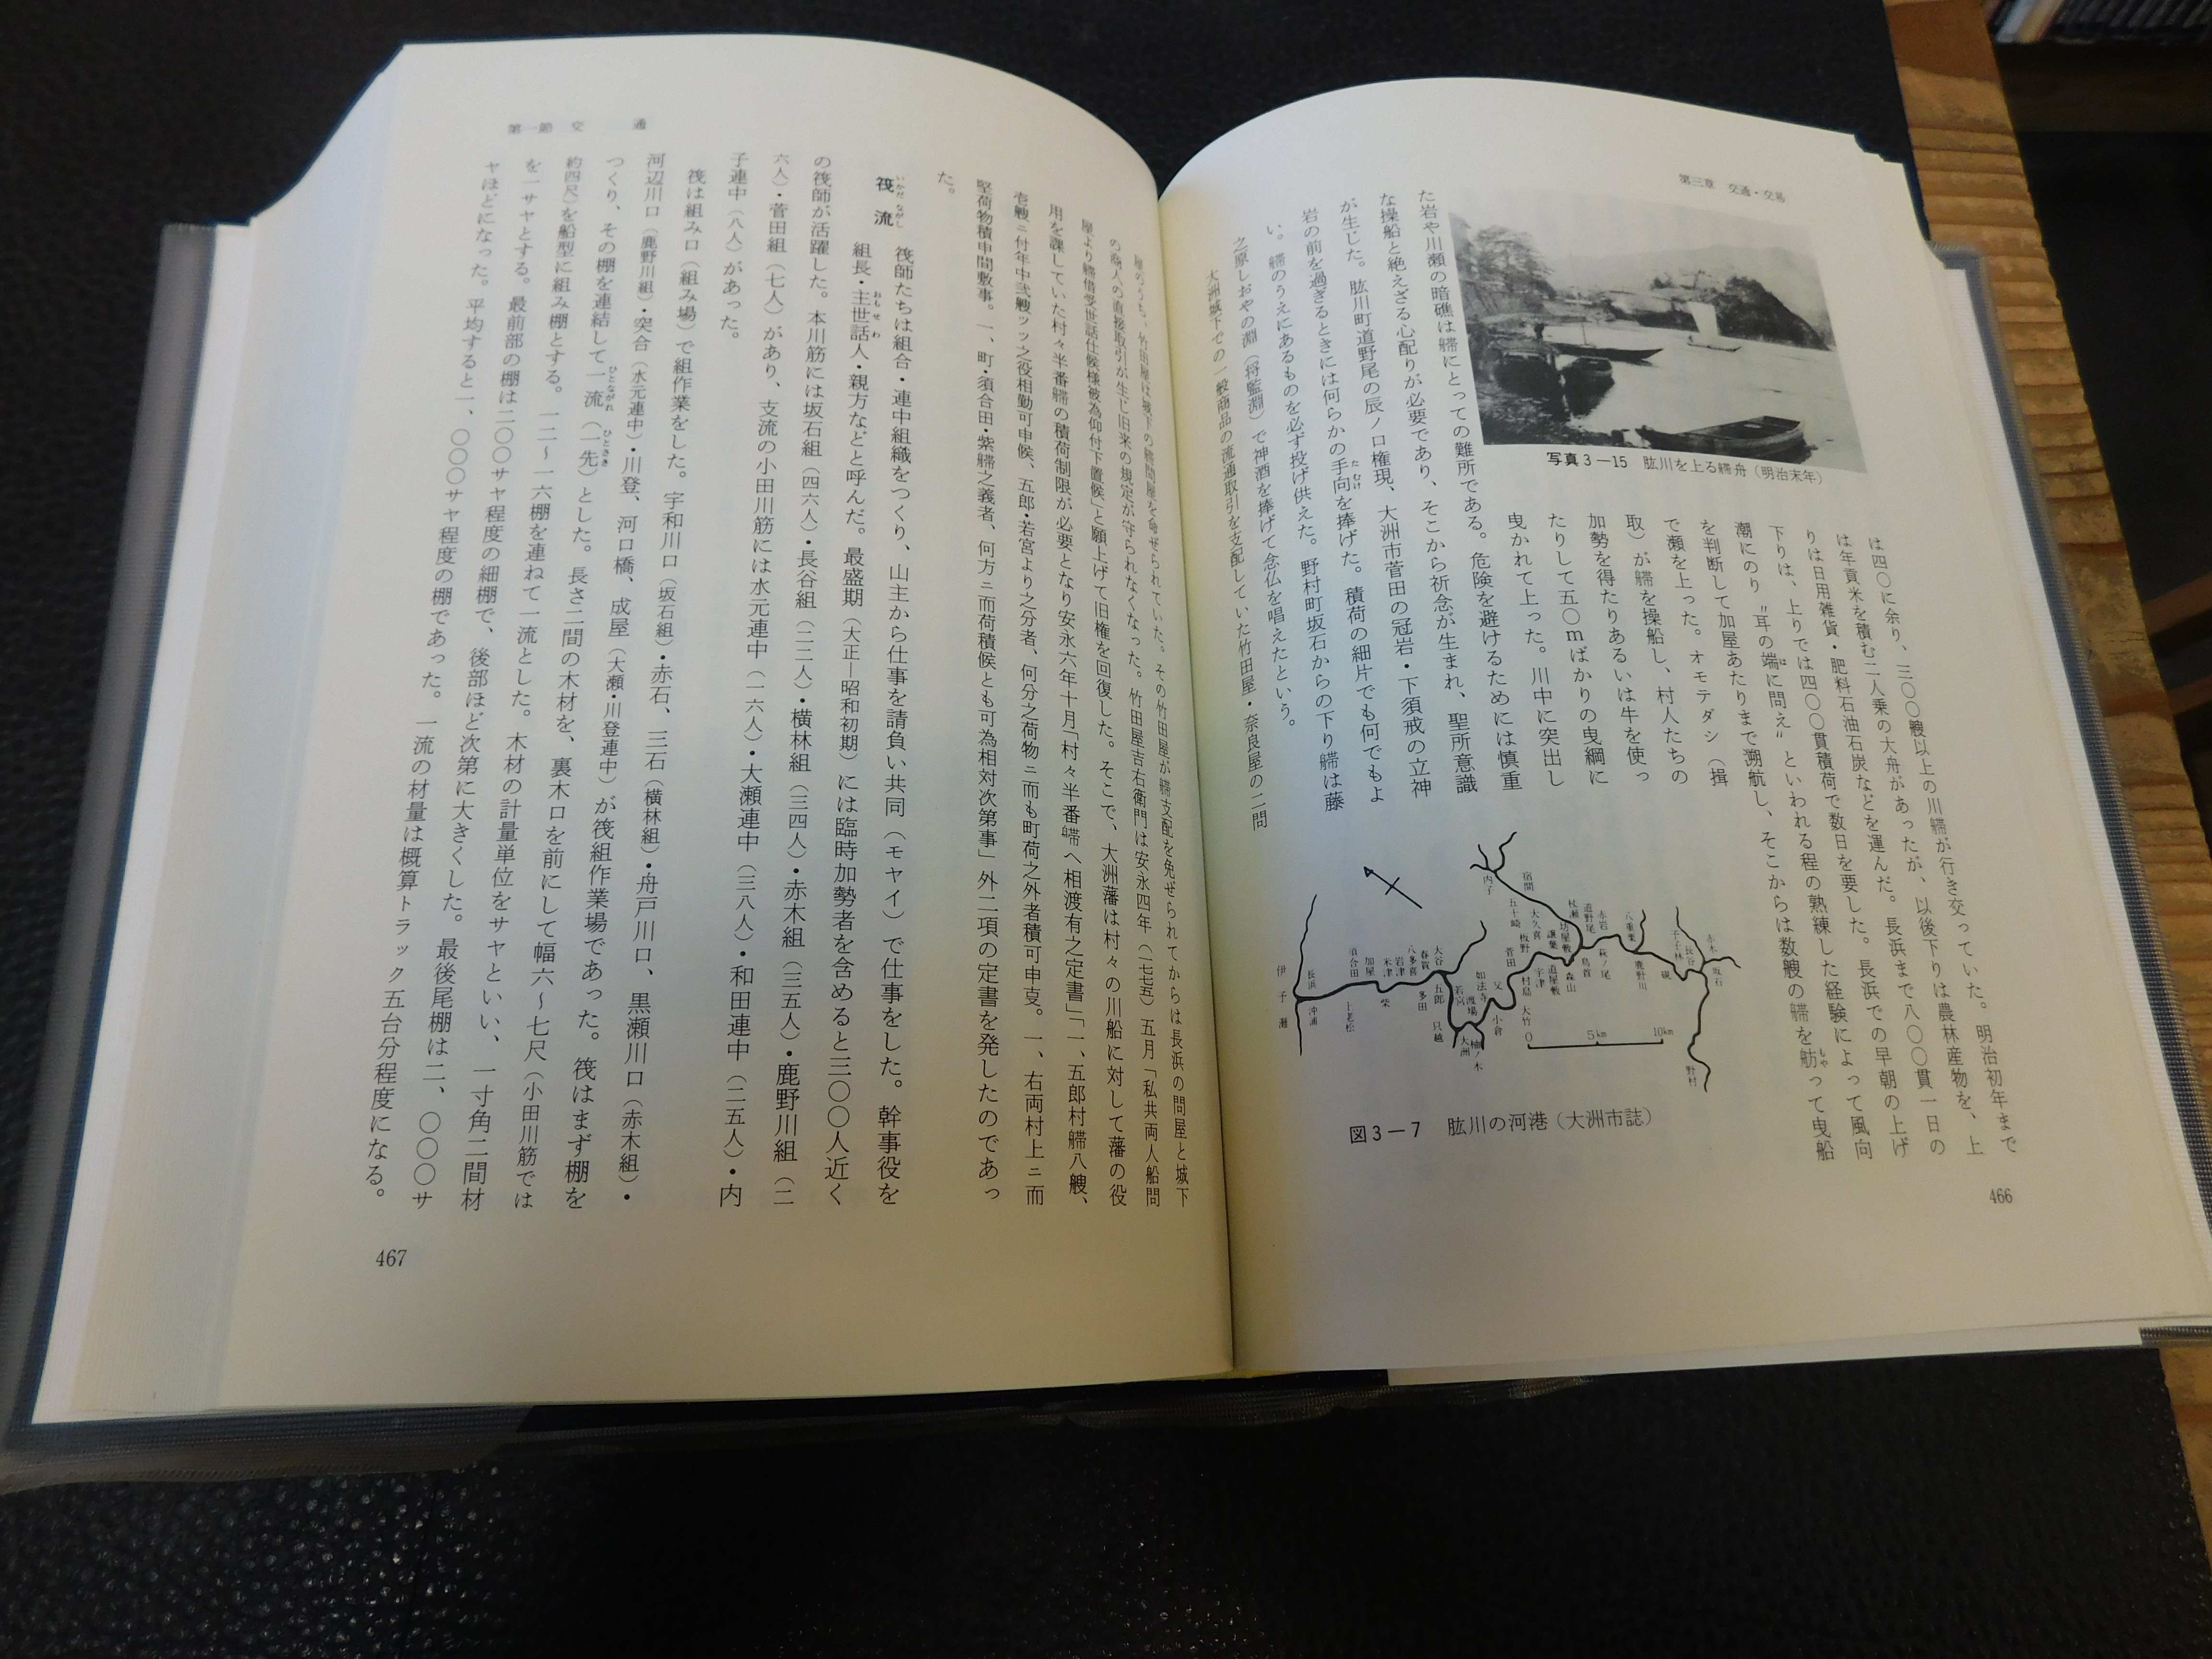 第三章　交通・交易
は四〇に余り、三〇〇艘以上の川艜が行き交っていた。明治初年まで
は年貢米を積む二人乗の大舟があったが、以後下りは農林産物を、上
りは日用雑貨・肥料石油石炭などを運んだ。長浜まで八〇〇貫一日の
下りは、上りでは四〇〇貫積荷で数日を要した。長浜での早朝の上げ
潮にのり〝耳の端に問え〟といわれる程の熟練した経験によって風向
を判断して加屋あたりまで溯航し、そこからは数艘の艜を舫って曳船
で瀬を上った。オモテダシ（揖
取）が艜を操船し、村人たちの
加勢を得たりあるいは牛を使っ
たりして五〇mばかりの曳綱に
曳かれて上った。川中に突出し
た岩や川瀬の暗礁は艜にとっての難所である。危険を避けるためには慎重
な操船と絶えざる心配りが必要であり、そこから祈念が生まれ、聖所意識
が生じた。肱川町道野尾の辰ノ口権現、大洲市菅田の冠岩・下須戒の立神
岩の前を過ぎるときには何らかの手向を捧げた。積荷の細片でも何でもよ
い。艜のうえにあるものを必ず投げ供えた。野村町坂石からの下り艜は藤
之原しおやの淵（将監淵）で神酒を捧げて念仏を唱えたという。
大洲城下での一般商品の流通取引を支配していた竹田屋・奈良屋の二問
写真3－15　肱川を上る艜舟（明治末年）
内子
宿間
五十崎
大久喜
板野
菅田
坊屋敷
譲葉
杖瀬
道野尾
赤岩
八重栗
萩ノ尾
鳥首
森山
道屋敷
宇津
村島
鹿野川
予子林
長谷
硯
赤木
坂石
野村
伊予灘
長浜
沖浦
須合田
上老松
加屋
米津
柴
岩津
八多喜
春賀
多田
大谷
五郎
若宮
只越
渡場
如法寺
父
小倉
大竹
大洲
柚ノ木
0
5km
10km
図3－7　肱川の河港（大洲市誌）
466
第一節　交　　通
屋のうち、竹田屋は城下の艜問屋を命ぜられていた。その竹田屋が艜支配を免ぜられてからは長浜の問屋と城下
の商人の直接取引が生じ旧来の規定が守られなくなった。竹田屋吉右衛門は安永四年（一七七五）五月「私共両人船問
屋より艜借受世話仕候様被為仰付下置候」と願上げて旧権を回復した。そこで、大洲藩は村々の川船に対して藩の役
用を課していた村々半番艜の積荷制限が必要となり安永六年十月「村々半番艜へ相渡有之定書」「一、五郎村艜八艘、
壱艘ニ付年中弐艘ッッ之役相勤可申候、五郎・若宮より之分者、何分之荷物ニ而も町荷之外者積可申叓。一、右両村上ニ而
堅荷物積申間敷事。一、町・須合田・柴艜之義者、何方ニ而荷積候とも可為相対次第事」外二項の定書を発したのであっ
た。
筏流　筏師たちは組合・連中組織をつくり、山主から仕事を請負い共同（モヤイ）で仕事をした。幹事役を
組長・主世話人・親方などと呼んだ。最盛期（大正―昭和初期）には臨時加勢者を含めると三〇〇人近く
の筏師が活躍した。本川筋には坂石組（四六人）・長谷組（二二人）・横林組（三四人）・赤木組（三五人）・鹿野川組（二
六人）・菅田組（七人）があり、支流の小田川筋には水元連中（一六人）・大瀬連中（三八人）・和田連中（二五人）・内
子連中（八人）があった。
筏は組み口（組み場）で組作業をした。宇和川口（坂石組）・赤石、三石（横林組）・舟戸川口、黒瀬川口（赤木組）・
河辺川口（鹿野川組）・突合（水元連中）・川登、河口橋、成屋（大瀬・川登連中）が筏組作業場であった。筏はまず棚を
つくり、その棚を連結して一流（一先）とした。長さ二間の木材を、裏木口を前にして幅六～七尺（小田川筋では
約四尺）を船型に組み棚とする。一二～一六棚を連ねて一流とした。木材の計量単位をサヤといい、一寸角二間材
を一サヤとする。最前部の棚は二〇〇サヤ程度の細棚で、後部ほど次第に大きくした。最後尾棚は二、〇〇〇サ
ヤほどになった。平均すると一、〇〇〇サヤ程度の棚であった。一流の材量は概算トラック五台分程度になる。
467